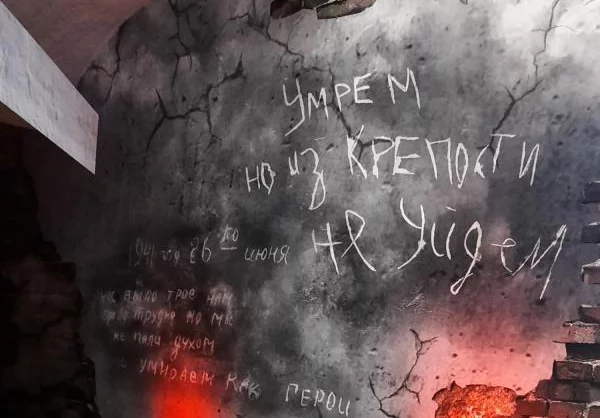 УМРЕМ
НО ИЗ КРЕПОСТИ
НЕ УЙДЕМ
1941 год 26 го июня
НАС БЫЛО ТРОЕ НАМ
БЫЛО трудно НО МЫ
НЕ ПАЛИ ДУХОМ
И УМИРАЕМ КАК ГЕРОИ